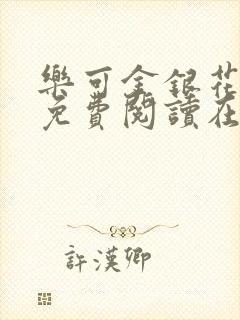 樂可金銀花
免費閱讀在
許漢卿